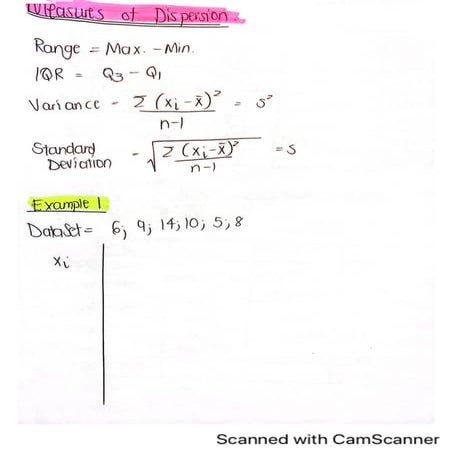 Measures of Dispersion:
Range = Max. - Min.
IQR = Q₃ - Q₁
Variance = Σ (xᵢ - x̄)² / n-1 = s²
Standard Deviation = √( Σ (xᵢ - x̄)² / n-1 ) = s
Example 1
DataSet = 6; 9; 14; 10; 5; 8
xᵢ
Scanned with CamScanner